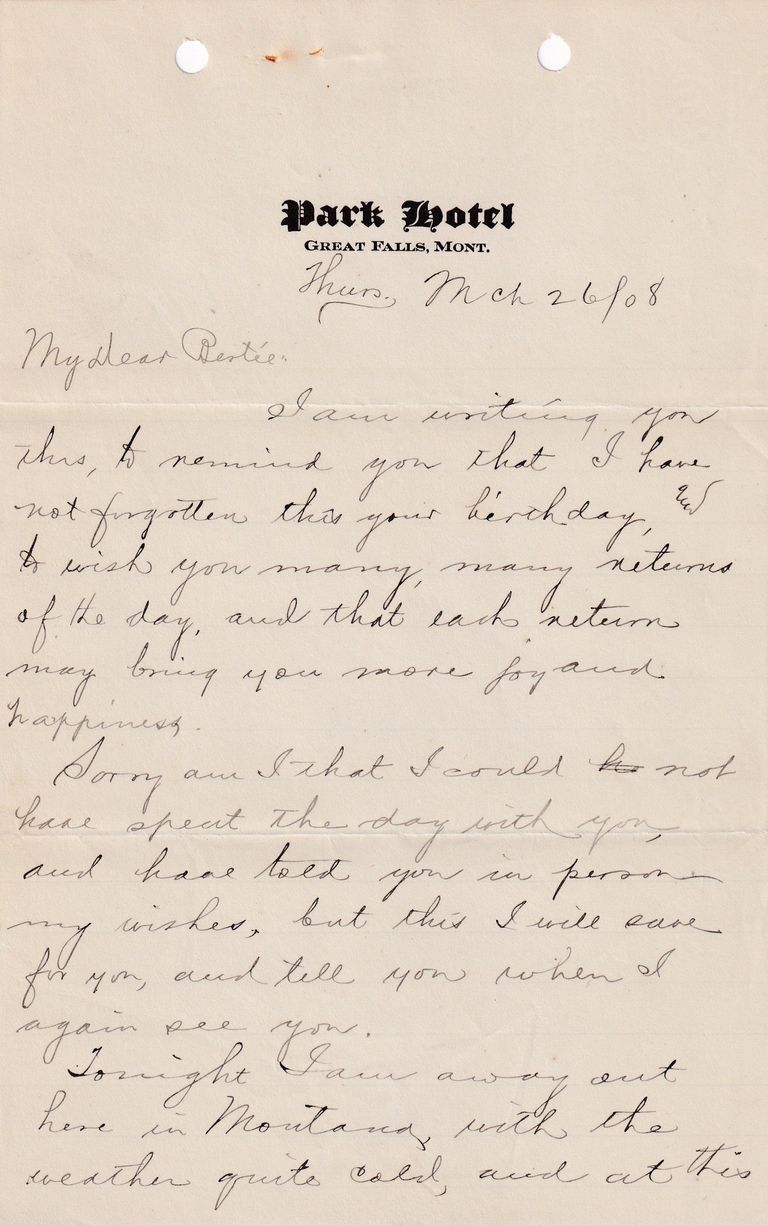 Park Hotel
GREAT FALLS, MONT.
Thurs. Mch 26/08
My Dear Bertie:
I am writing you
this, to remind you that I have
not forgotten this your birthday, and
to wish you many, many returns
of the day, and that each return
may bring you more joy and
happiness.
Sorry am I that I could not
have spent the day with you,
and have told you in person
my wishes, but this I will save
for you, and tell you when I
again see you.
Tonight I am away out
here in Montana, with the
weather quite cold, and at this